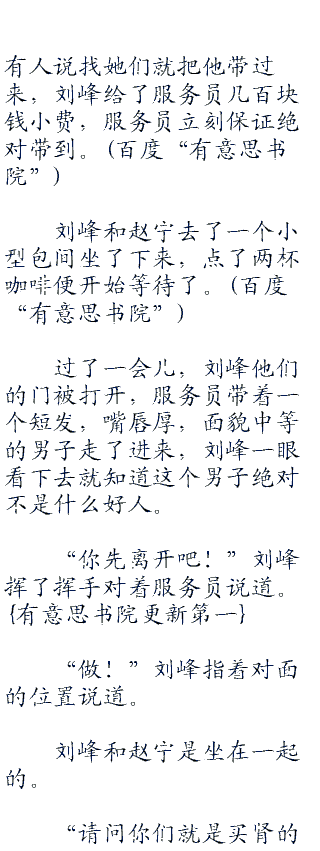 有人说找她们就把他带过
来，刘峰给了服务员几百块
钱小费，服务员立刻保证绝
对带到。(百度“有意思书
院”)
刘峰和赵宁去了一个小
型包间坐了下来，点了两杯
咖啡便开始等待了。(百度
“有意思书院”)
过了一会儿，刘峰他们
的门被打开，服务员带着一
个短发，嘴唇厚，面貌中等
的男子走了进来，刘峰一眼
看下去就知道这个男子绝对
不是什么好人。
“你先离开吧！”刘峰
挥了挥手对着服务员说道。
{有意思书院更新第一}
“做！”刘峰指着对面
的位置说道。
刘峰和赵宁是坐在一起
的。
“请问你们就是买肾的